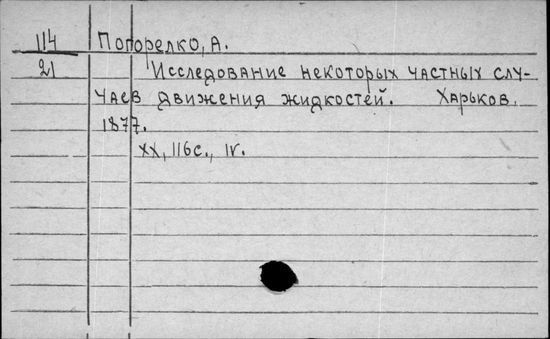 114 Погорелко, А.
21 Исследование некоторых частных слу-
чаев движения жидкостей. Харьков.
1877.
XX, 116с., IV.